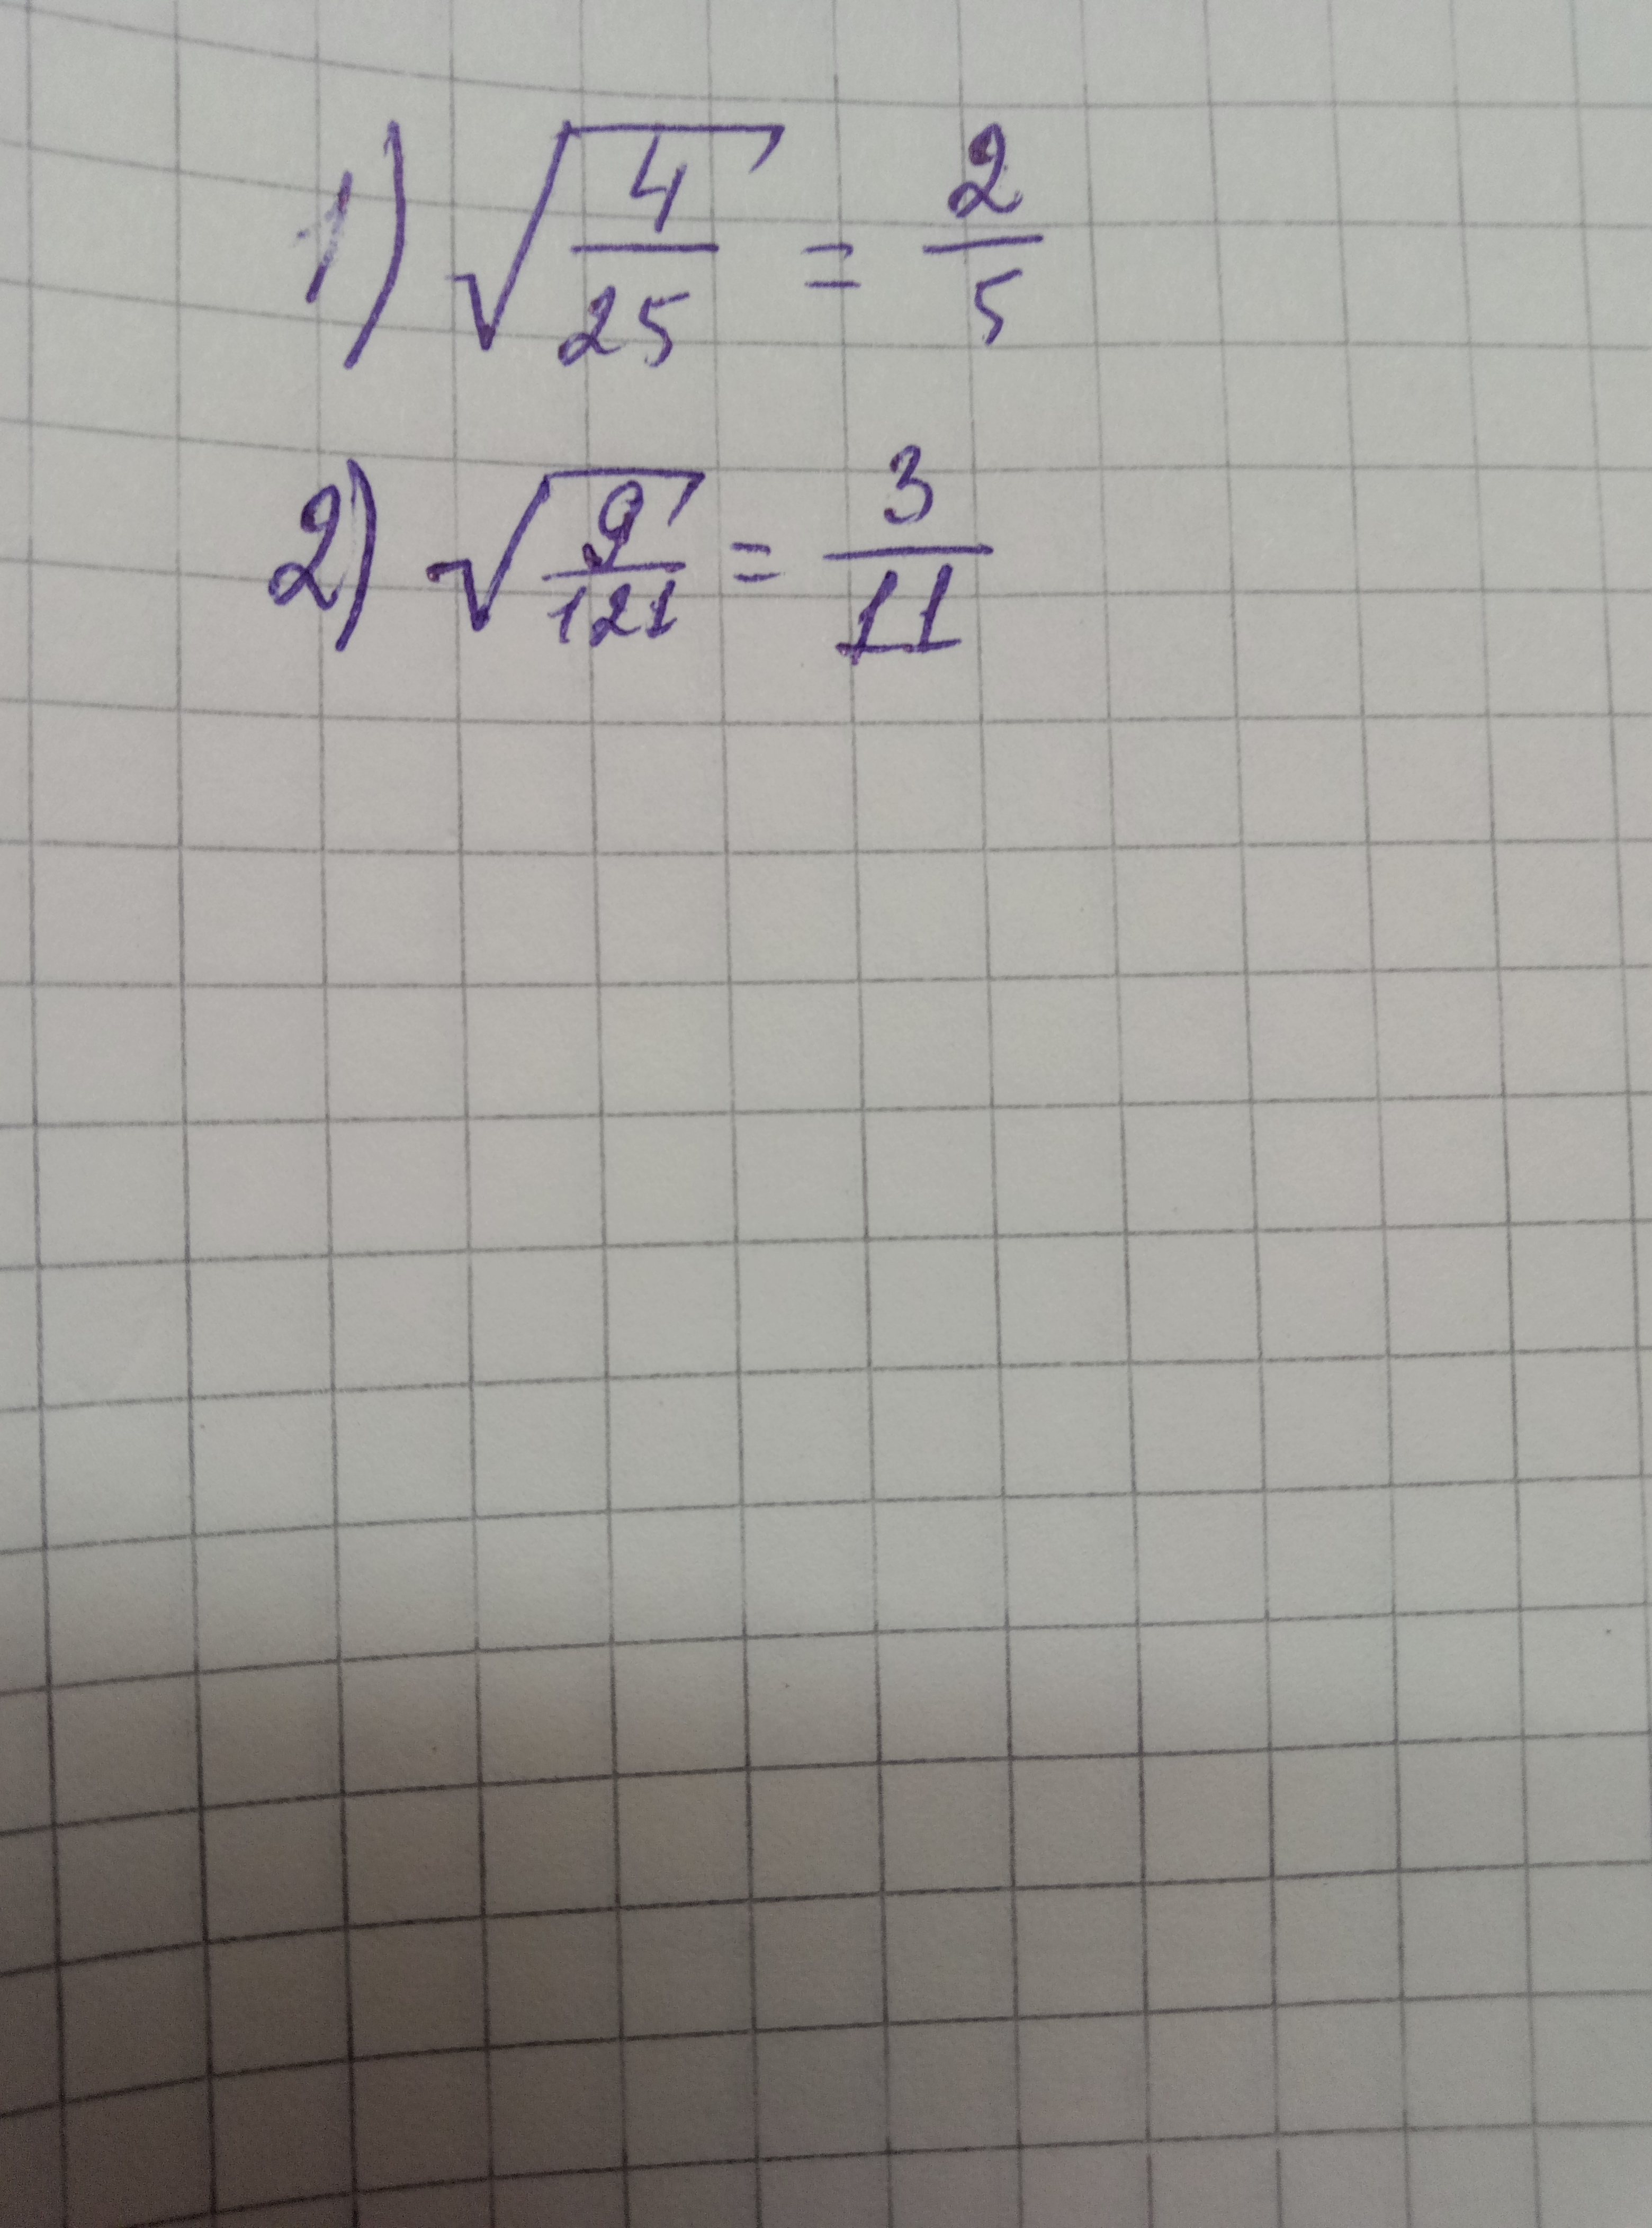 1) √4/25 = 2/5
2) √9/121 = 3/11